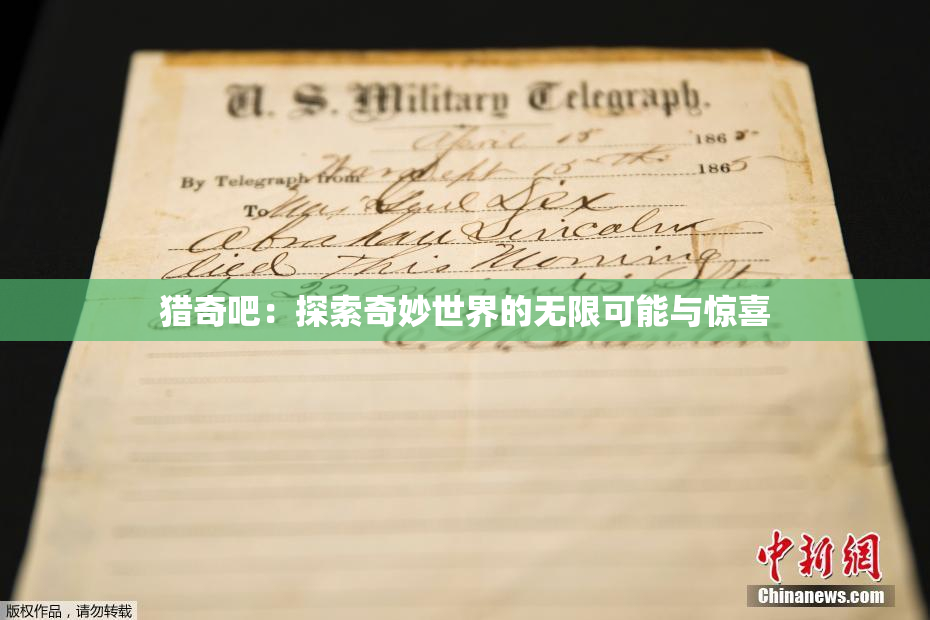 U. S. Military Telegraph.
April 15 1865
By Telegraph from War Dept 15th 1865
To Maj Genl Dix
Abraham Lincoln
died This Morning
at 22 minutes after
猎奇吧：探索奇妙世界的无限可能与惊喜
E. M. Stanton
中新网
Chinanews.com
版权作品，请勿转载